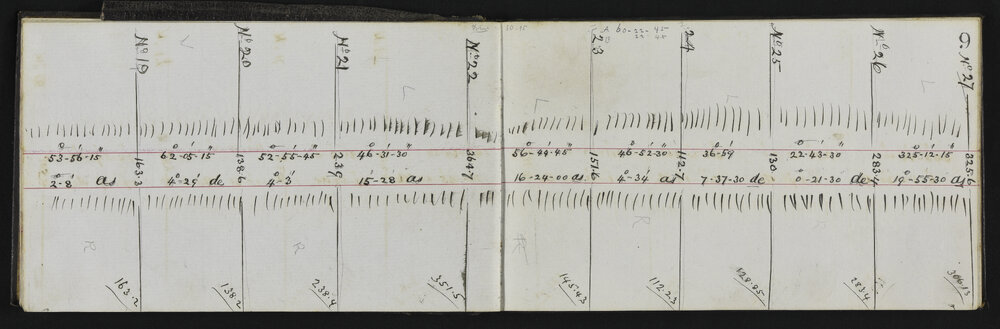 No 19
No 20
No 21
No 22
23
24
No 25
No 26
No 27
L
L
L
L
53-56-15
62-05-15
52-55-45
46-31-30
56-44-45
46-52-30
36-59
22-43-30
325-12-15
163.3
138.6
239
364.7
151.6
112.7
130
283.4
325.6
2-8 as
4-29 de
4-3
15-28 as
16-24-00 as
4-34 as
7-37-30 de
0-21-30 de
19-55-30 as
R
R
R
R
163.2
138.2
238.4
351.5
145.43
112.23
128.85
283.4
306.13